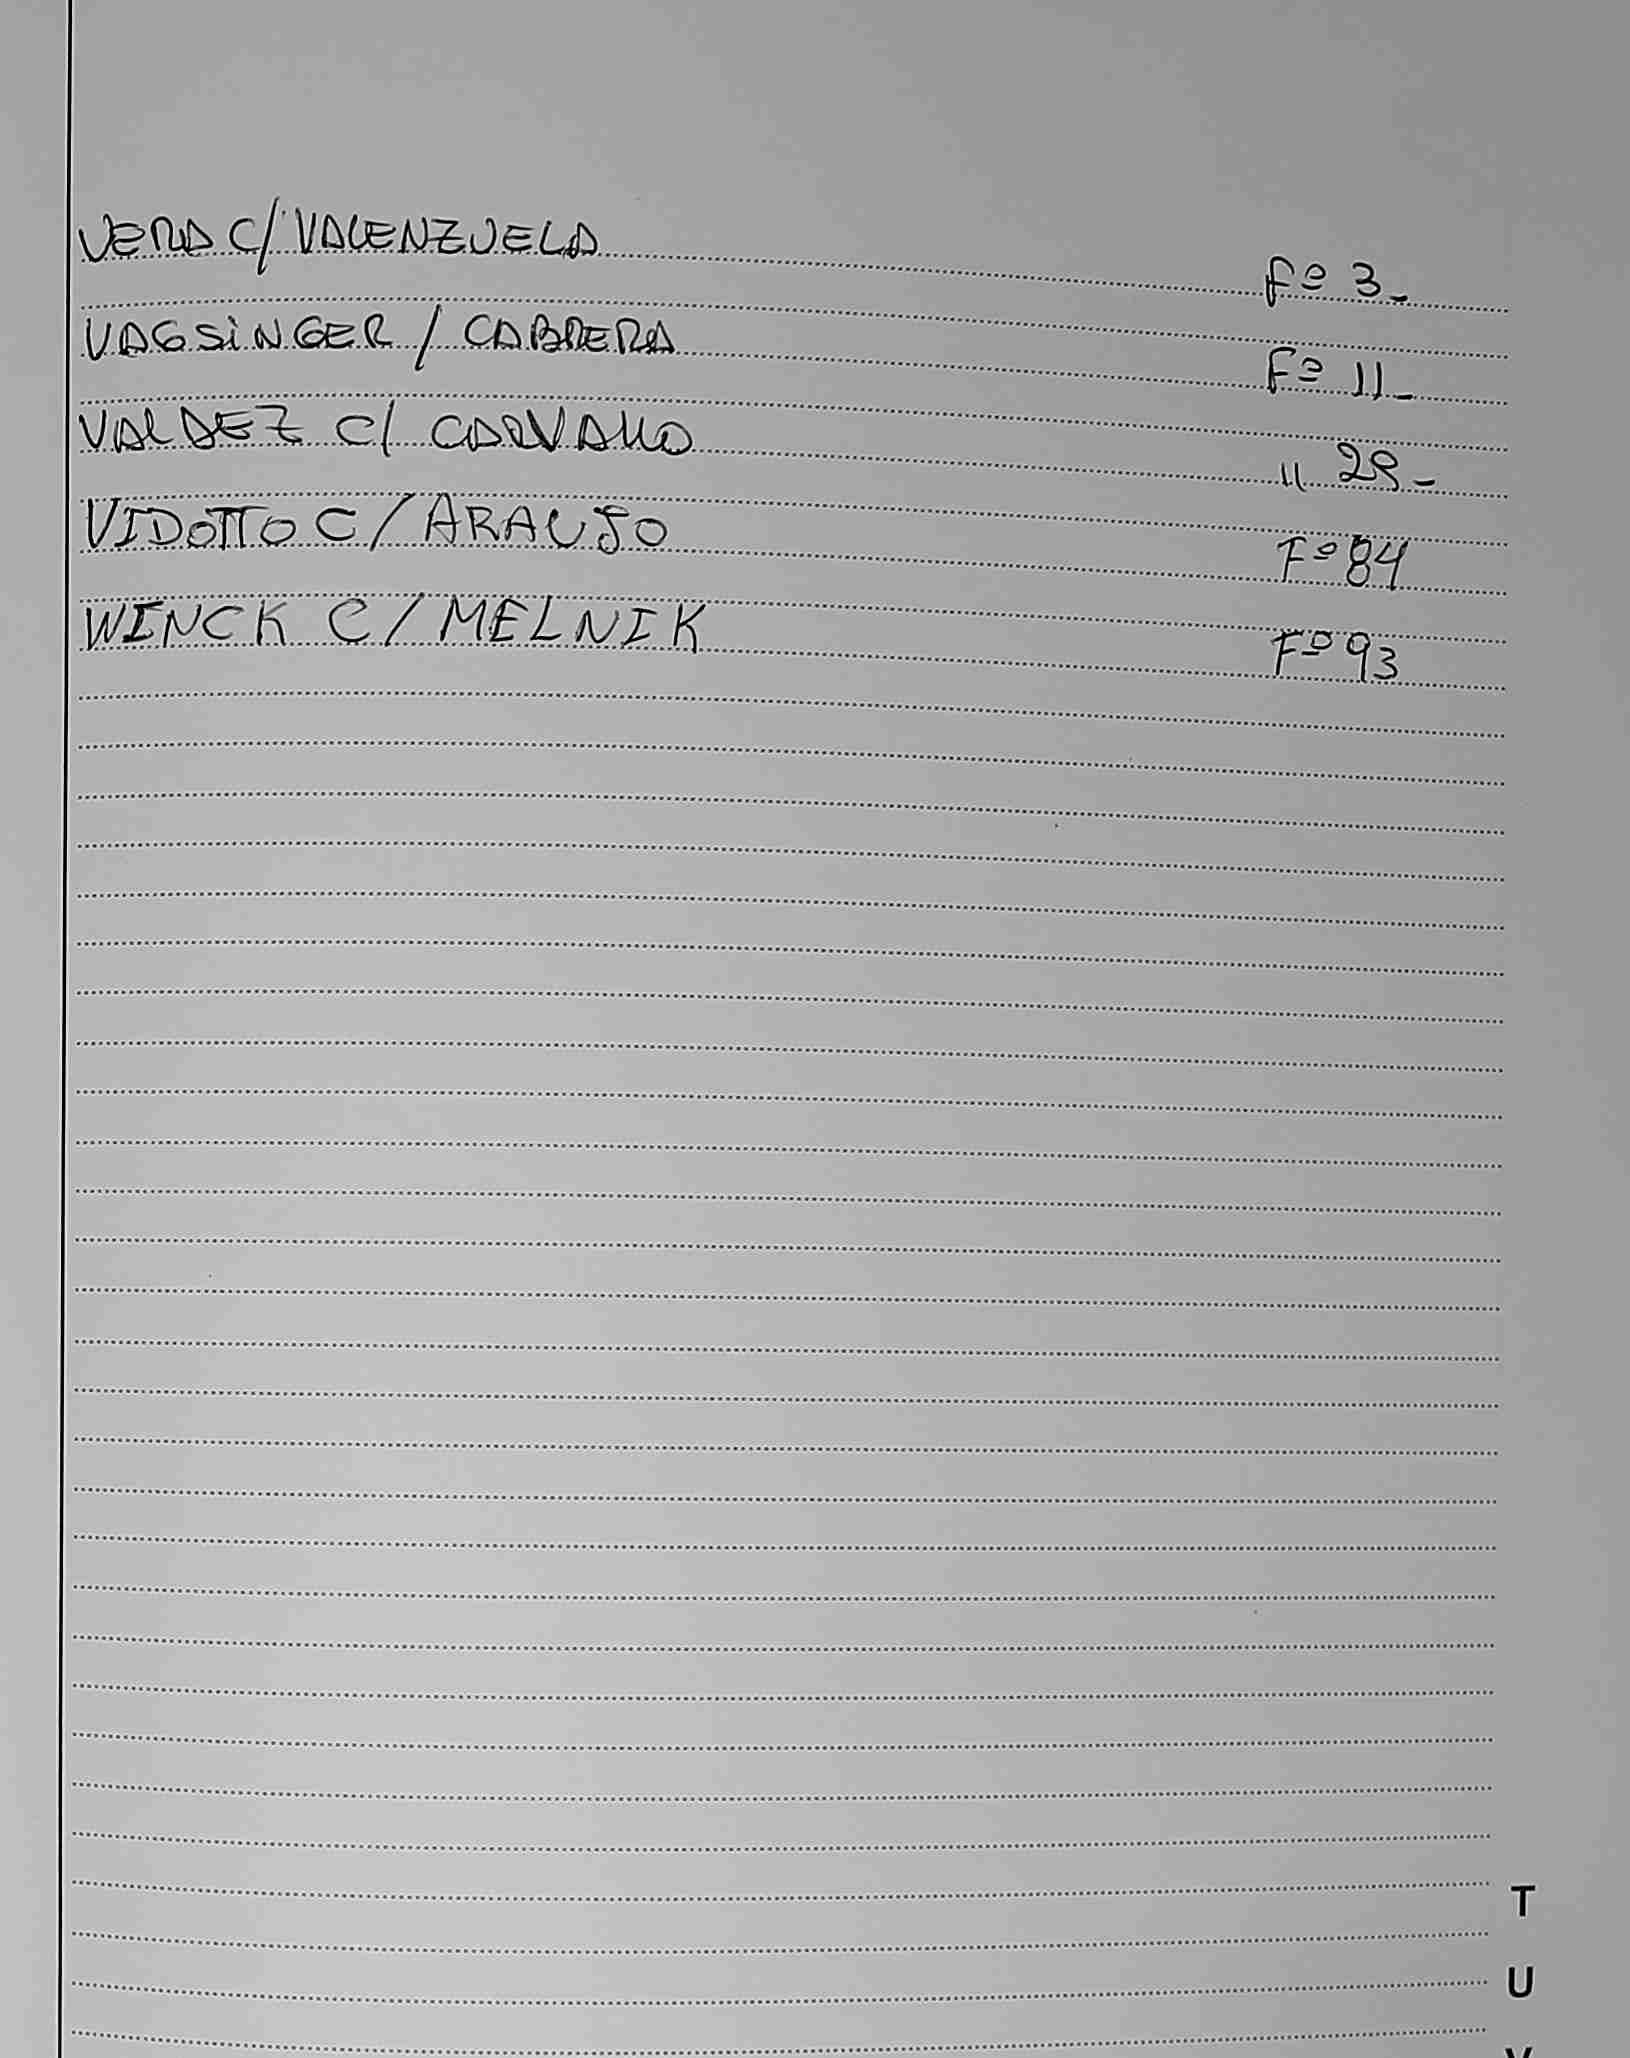 VERA C/ VALENZUELA Fº 3-
VAGSINGER / CABRERA Fº 11-
VALDEZ C/ CARVALLO " 29-
VIDOTTO C/ ARAUJO Fº 84
WINCK C/ MELNIK Fº 93
T
U
V